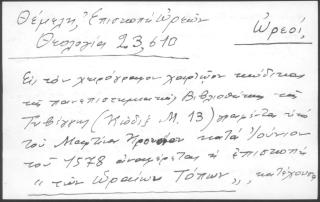 Θέμελη, Ἐπισκοπὴ Ὠρεῶν
Θεολογία 23, 610
Ὠρεοί,
Εἰς τὸν χειρόγραφον χαρτῷον κώδικα
τῆς πανεπιστημιακῆς Βιβλιοθήκης τῆς
Τυβίγγης (Κῶδιξ Μ. 13) ὑπὸ
τοῦ Μαρτίνου Κρουσίου κατὰ Ἰούνιον
τοῦ 1578 ἀναφέρεται ἡ ἐπισκοπὴ
"τῶν ὡραίων Τόπων",